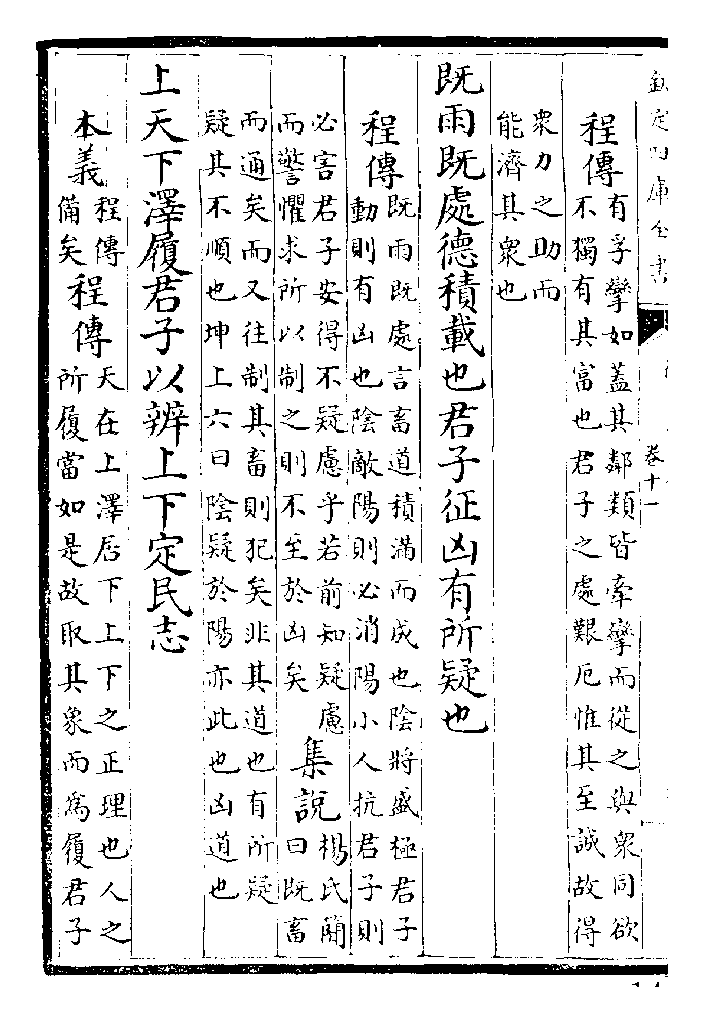 欽定四庫全書
卷十一
程傳
有孚攣如蓋其鄰類皆牽攣而從之與衆同欲
不獨有其富也君子之處艱厄惟其至誠故得
衆力之助而
能濟其衆也
既雨既處德積載也君子征凶有所疑也
程傳
既雨既處言畜道積滿而成也陰將盛極君子
動則有凶也陰敵陽則必消陽小人抗君子則
必害君子安得不疑慮乎若前知疑慮
而警懼求所以制之則不至於凶矣
集說
楊氏簡
曰既畜
而通矣而又往制其畜則犯矣非其道也有所疑
疑其不順也坤上六曰陰疑於陽亦此也凶道也
上天下澤履君子以辨上下定民志
本義
程傳
備矣
程傳
天在上澤居下上下之正理也人之
所履當如是故取其象而爲履君子